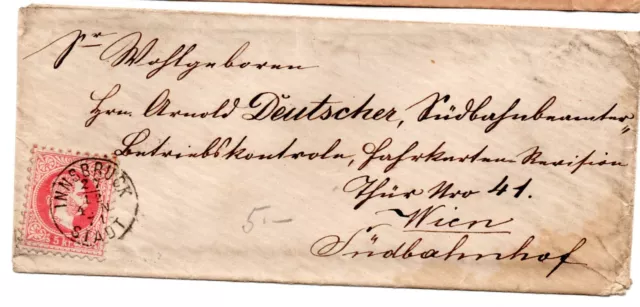 Sr Wohlgeboren
Hrn. Arnold Deutscher, Südbahnbeamter
Betriebskontrole, Fahrkarten-Revision
Thür Nro 41.
Wien
Südbahnhof
5.—
INNSBRUCK
STADT
5 kr